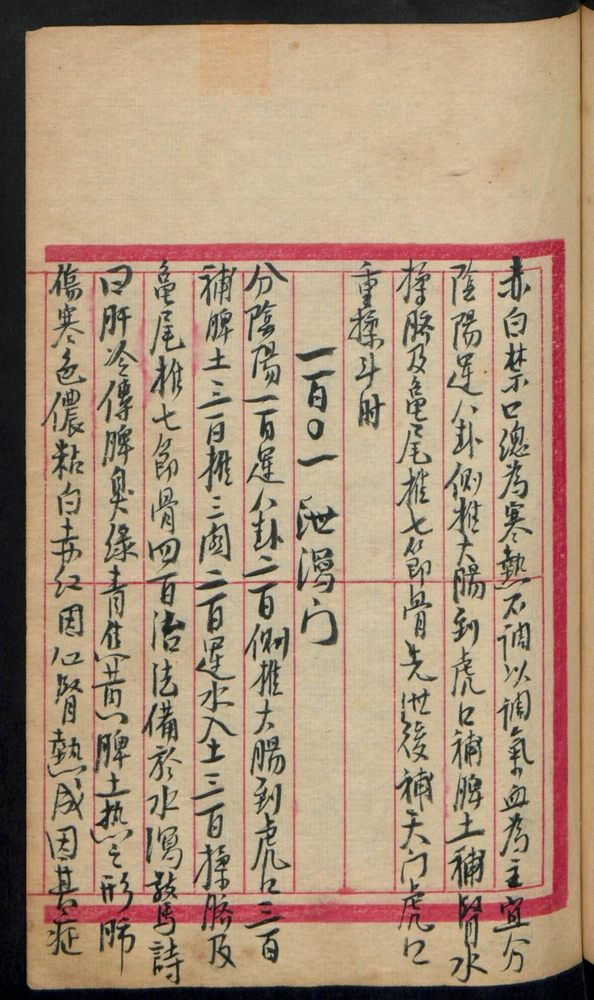 赤白禁口總為寒熱不調以調氣血為主宜分
陰陽運八卦側推大腸到虎口補脾土補腎水
揉臍及龜尾推七節骨先泄後補天门虎口
重揉斗肘
一百〇一 泄瀉门
分陰陽一百運八卦二百側推大腸到虎口三百
補脾土三百推三関二百運水入土三百揉臍及
龜尾推七節骨四百治法備於水瀉
詩
曰肝冷傳脾臭綠青焦黄脾土热之形肺
傷寒色儂粘白赤红因心腎熱成因其症